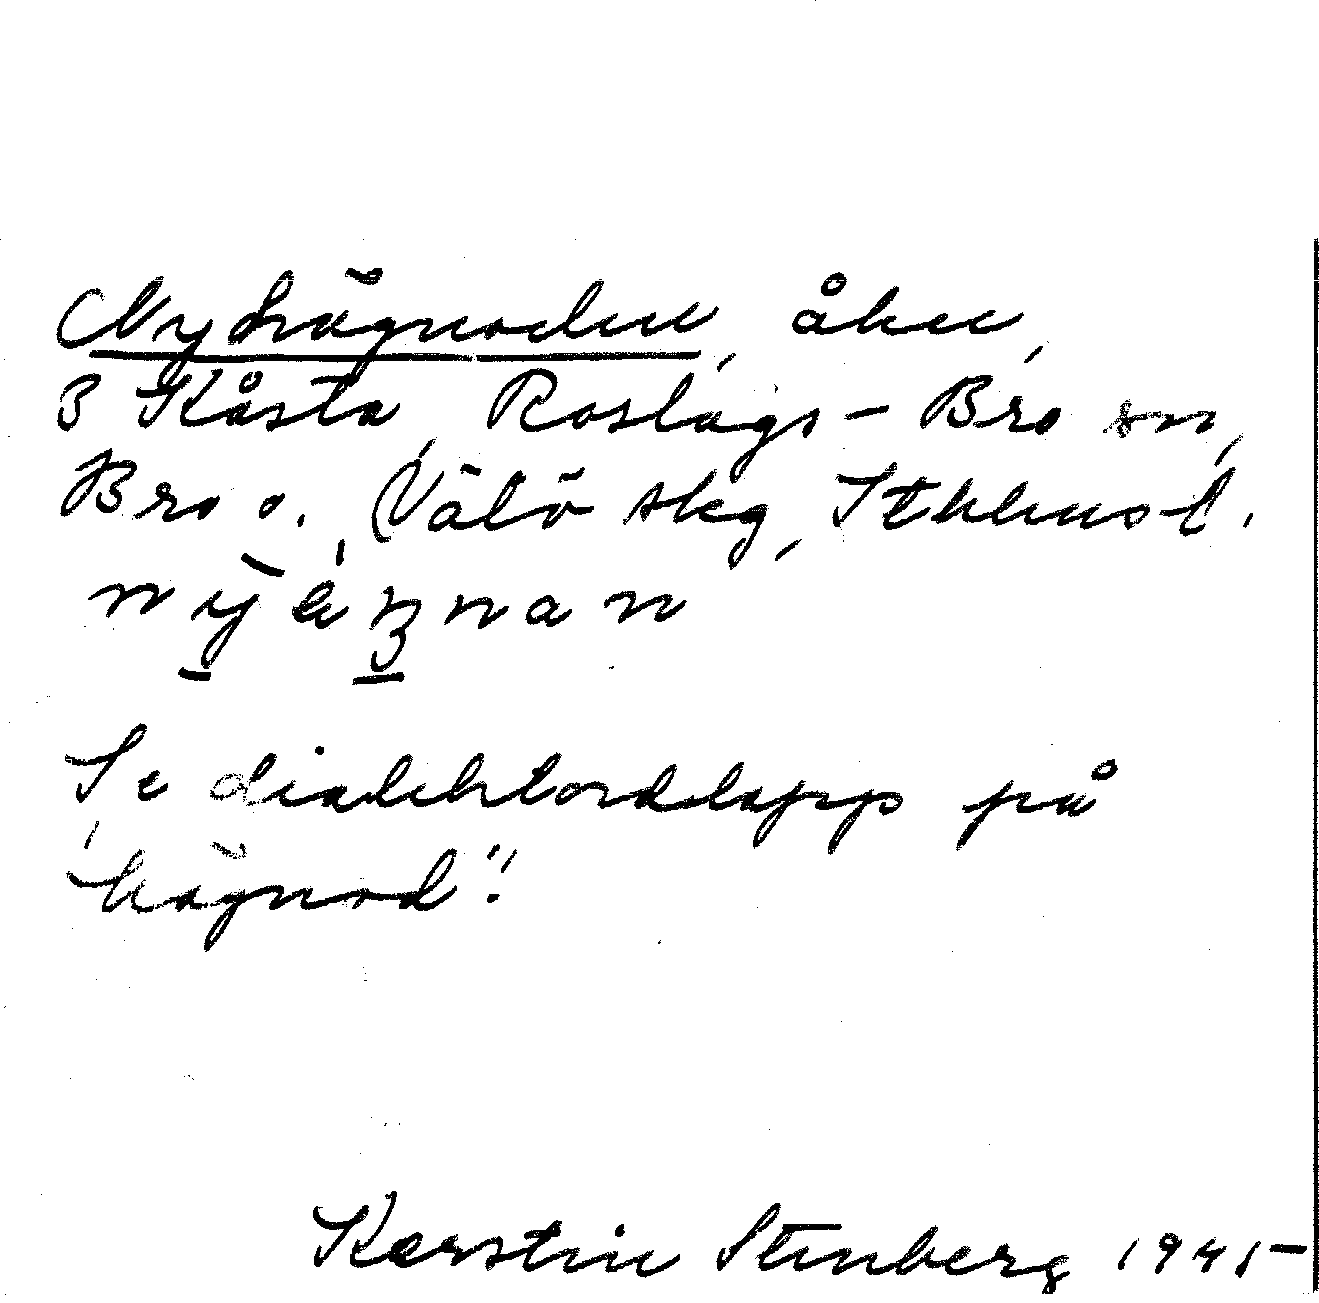 Nyhägnaden, åker,
3 Kåsta, Roslags-Bro sn,
Bro o. Vätö skg, Sthlms l.
Se dialektordslapp på
"hägnad".
Kerstin Stenberg 1945